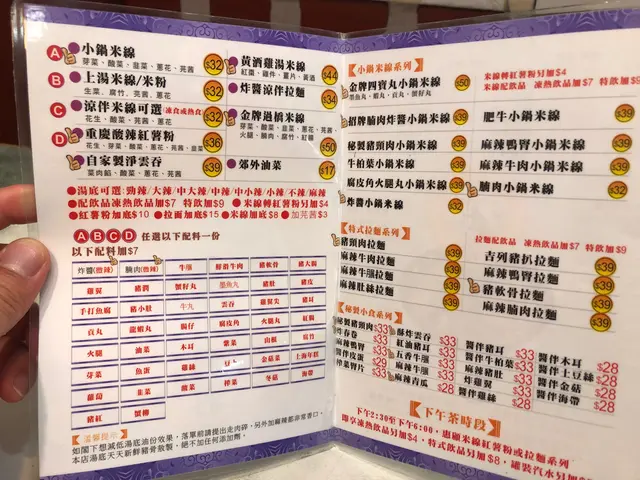 A 小鍋米線 $32
芽菜、酸菜、韭菜、蔥花、芫茜
B 上湯米線/米粉 $32
生菜、腐竹、芫茜、蔥花
C 涼伴米線可選(凍食或熱食) $32
花生、酸菜、蔥花、芫茜
D 重慶酸辣紅薯粉 $36
花生、芽菜、酸菜、蔥花、芫茜、韭菜
自家製淨雲吞 $39
菜肉餡、酸菜、蔥花、芫茜
黃酒雞湯米線 $44
紅棗、雞件、薑片、黃酒
炸醬涼伴拉麵 $34
金牌過橋米線 $50
芽菜、酸菜、韭菜、蔥花、芫茜
火腿、腩肉、腐竹、紅腸
郊外油菜 $17
●湯底可選:勁辣/大辣/中大辣/中辣/中小辣/小辣/不辣/麻辣
●配飲品凍熱飲品加$7 特飲加$9 ●米線轉紅薯粉另加$4
●紅薯粉加底$10 ●拉麵加底$15 ●米線加底$8 ●加芫茜$3
A B C D 任選以下配料一份
以下配料加$7
炸醬(微辣) 腩肉(微辣) 牛𦟌 鮮滑牛肉 豬軟骨 豬大腸
雞翼 豬潤 蟹籽丸 墨魚丸 豬肚 豬皮
手打魚腐 豬小肚 牛丸 雲吞 雞翼尖 豬耳
貢丸 龍蝦丸 腸仔 腐皮角 火腿丸 紅腸
火腿 油菜 木耳 紫菜 山根 腐竹
芽菜 魚蛋 雞絲 豆卜 金菇菜 上海年糕
蘿蔔 韭菜 酸菜 榨菜 冬菇 海帶
豬紅 蟹柳
溫馨提示
如閣下想減低湯底油份效果，落單前請提出走肉碎，另外加麻辣都非常香口。
本店湯底天天新鮮豬骨熬製，絕不加任何添加劑。
【小鍋米線系列】
金牌四寶丸小鍋米線 $50
墨魚丸、蝦丸、貢丸、蟹籽丸
招牌腩肉炸醬小鍋米線 $39
秘製豬頸肉小鍋米線 $39
牛柏葉小鍋米線 $39
腐皮角火腿丸小鍋米線 $39
炸醬小鍋米線 $32
米線轉紅薯粉另加$4
米線配飲品 凍熱飲品加$7 特飲加$9
肥牛小鍋米線 $39
麻辣鴨腎小鍋米線 $39
麻辣牛肉小鍋米線 $39
腩肉小鍋米線 $32
【特式拉麵系列】
豬頸肉拉麵 $39
麻辣牛肉拉麵 $39
麻辣牛𦟌拉麵 $39
麻辣肚絲拉麵 $39
拉麵配飲品 凍熱飲品加$7 特飲加$9
吉列豬扒拉麵 $39
麻辣鴨腎拉麵 $39
豬軟骨拉麵 $39
麻辣腩肉拉麵 $39
【秘製小食系列】
秘製豬頸肉$33 酥炸雲吞$33 醬伴豬耳$33 醬伴木耳$28
炸春卷$33 紅油豬耳$33 醬伴牛柏葉$33 醬伴土豆絲$28
麻辣鴨腎$33 五香牛𦟌$33 麻辣豬肚$33 醬伴金菇$28
醬伴皮蛋$29 麻辣豆腐$33 炸雞翼$33 醬伴海帶$28
榨菜腎片$33 麻辣青瓜$28 醬伴雞絲$28
【下午茶時段】
下午2:30至下午6:00，惠顧米線紅薯粉或拉麵系列
即享凍熱飲品另加$4，特式飲品另加$8，罐裝汽水另加$5